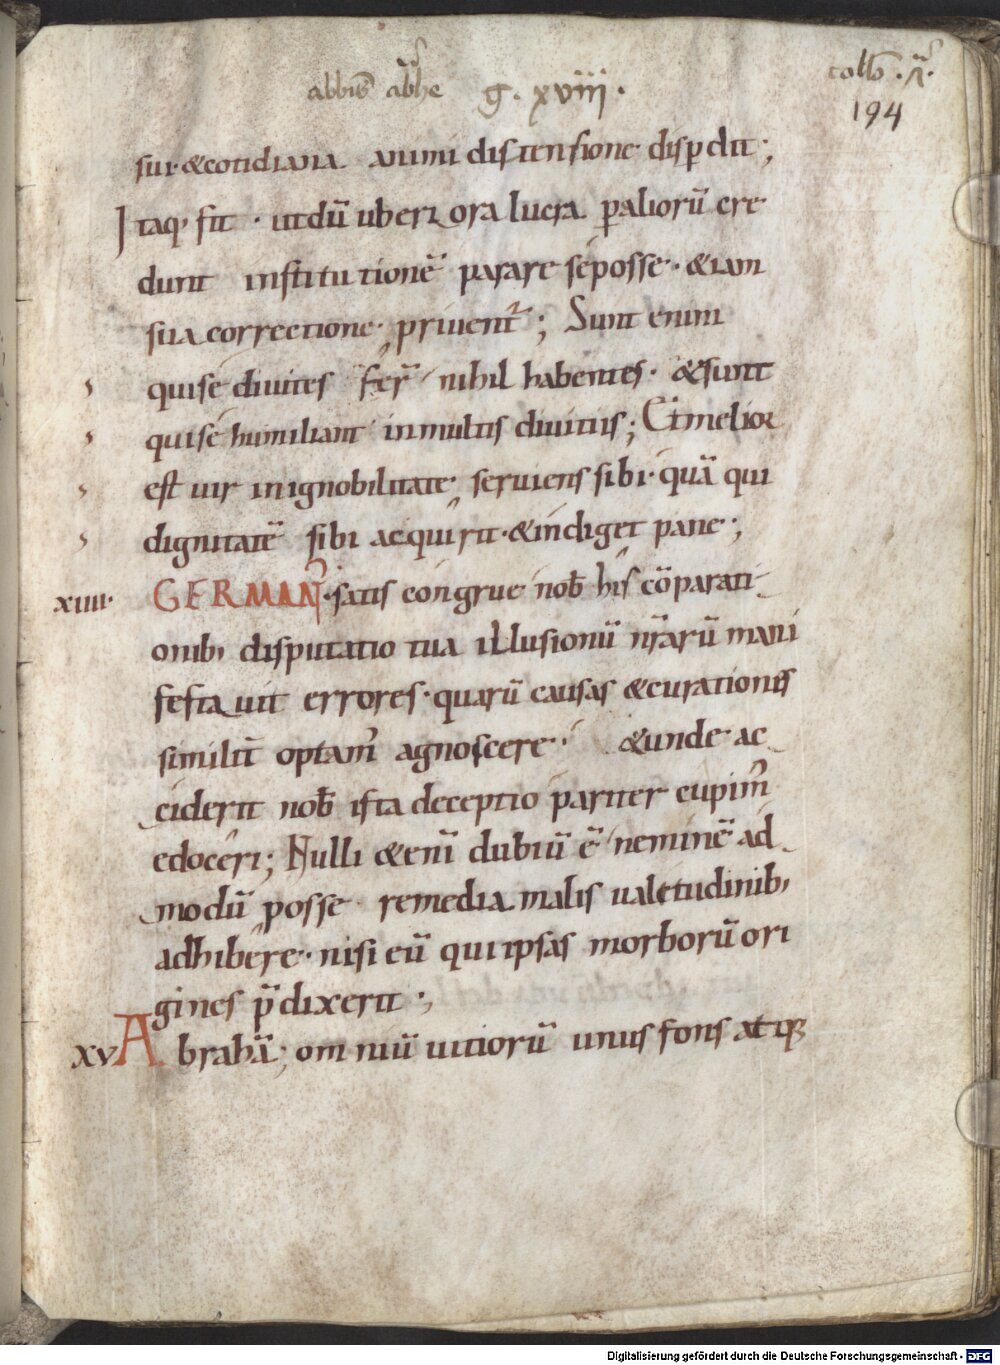 abbis abhe g. xviii.
collo .
194
sui· &cotidiana animi distensione disꝑdit;
Itaq; fit · utdū uberiora lucra ꝑaliorū cre
dunt institutionē parare seposse· &iam
sua correctione· priuent᷑; Sunt enim
quise diuites fer̄ nihil habentes· &sunt
quise humiliant inmultis diuitiis; Et melior
est uir inignobilitate· seruiens sibi· quā qui
dignitatē sibi acquirit·&indiget pane;
xiiii· GERMAN᾽· satis congrue nob̄ his cōparati
onib; disputatio tua illusionū nr̄arū mani
festauit errores· quarū causas &curationes
similit̄ optam᾽ agnoscere· &unde ac
ciderit nob̄ ista deceptio pariter cupim᾽
edoceri; Nulli &eni̅ dubiū ē neminē ad
modū posse remedia malis ualetudinib;
adhibere· nisi eū qui ipsas morborū ori
gines p̄dixerit·;
xv Abrahā; omniū uitiorū unus fons atq;
Digitalisierung gefördert durch die Deutsche Forschungsgemeinschaft - DFG